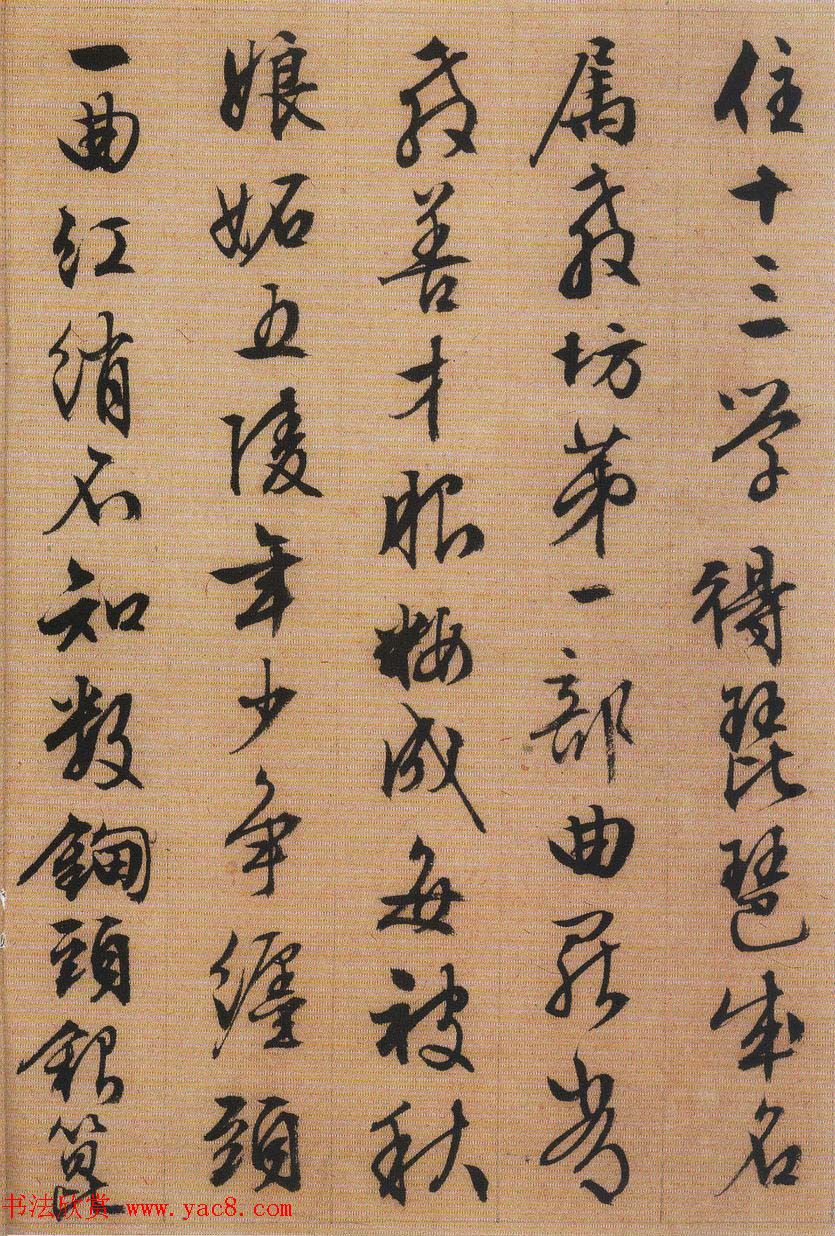 住十三学得琵琶成名
属教坊第一部曲罷
教善才服粧成每被秋
娘妬五陵年少争纏頭
一曲紅綃不知数鈿頭銀篦
书法欣赏 www.yac8.com